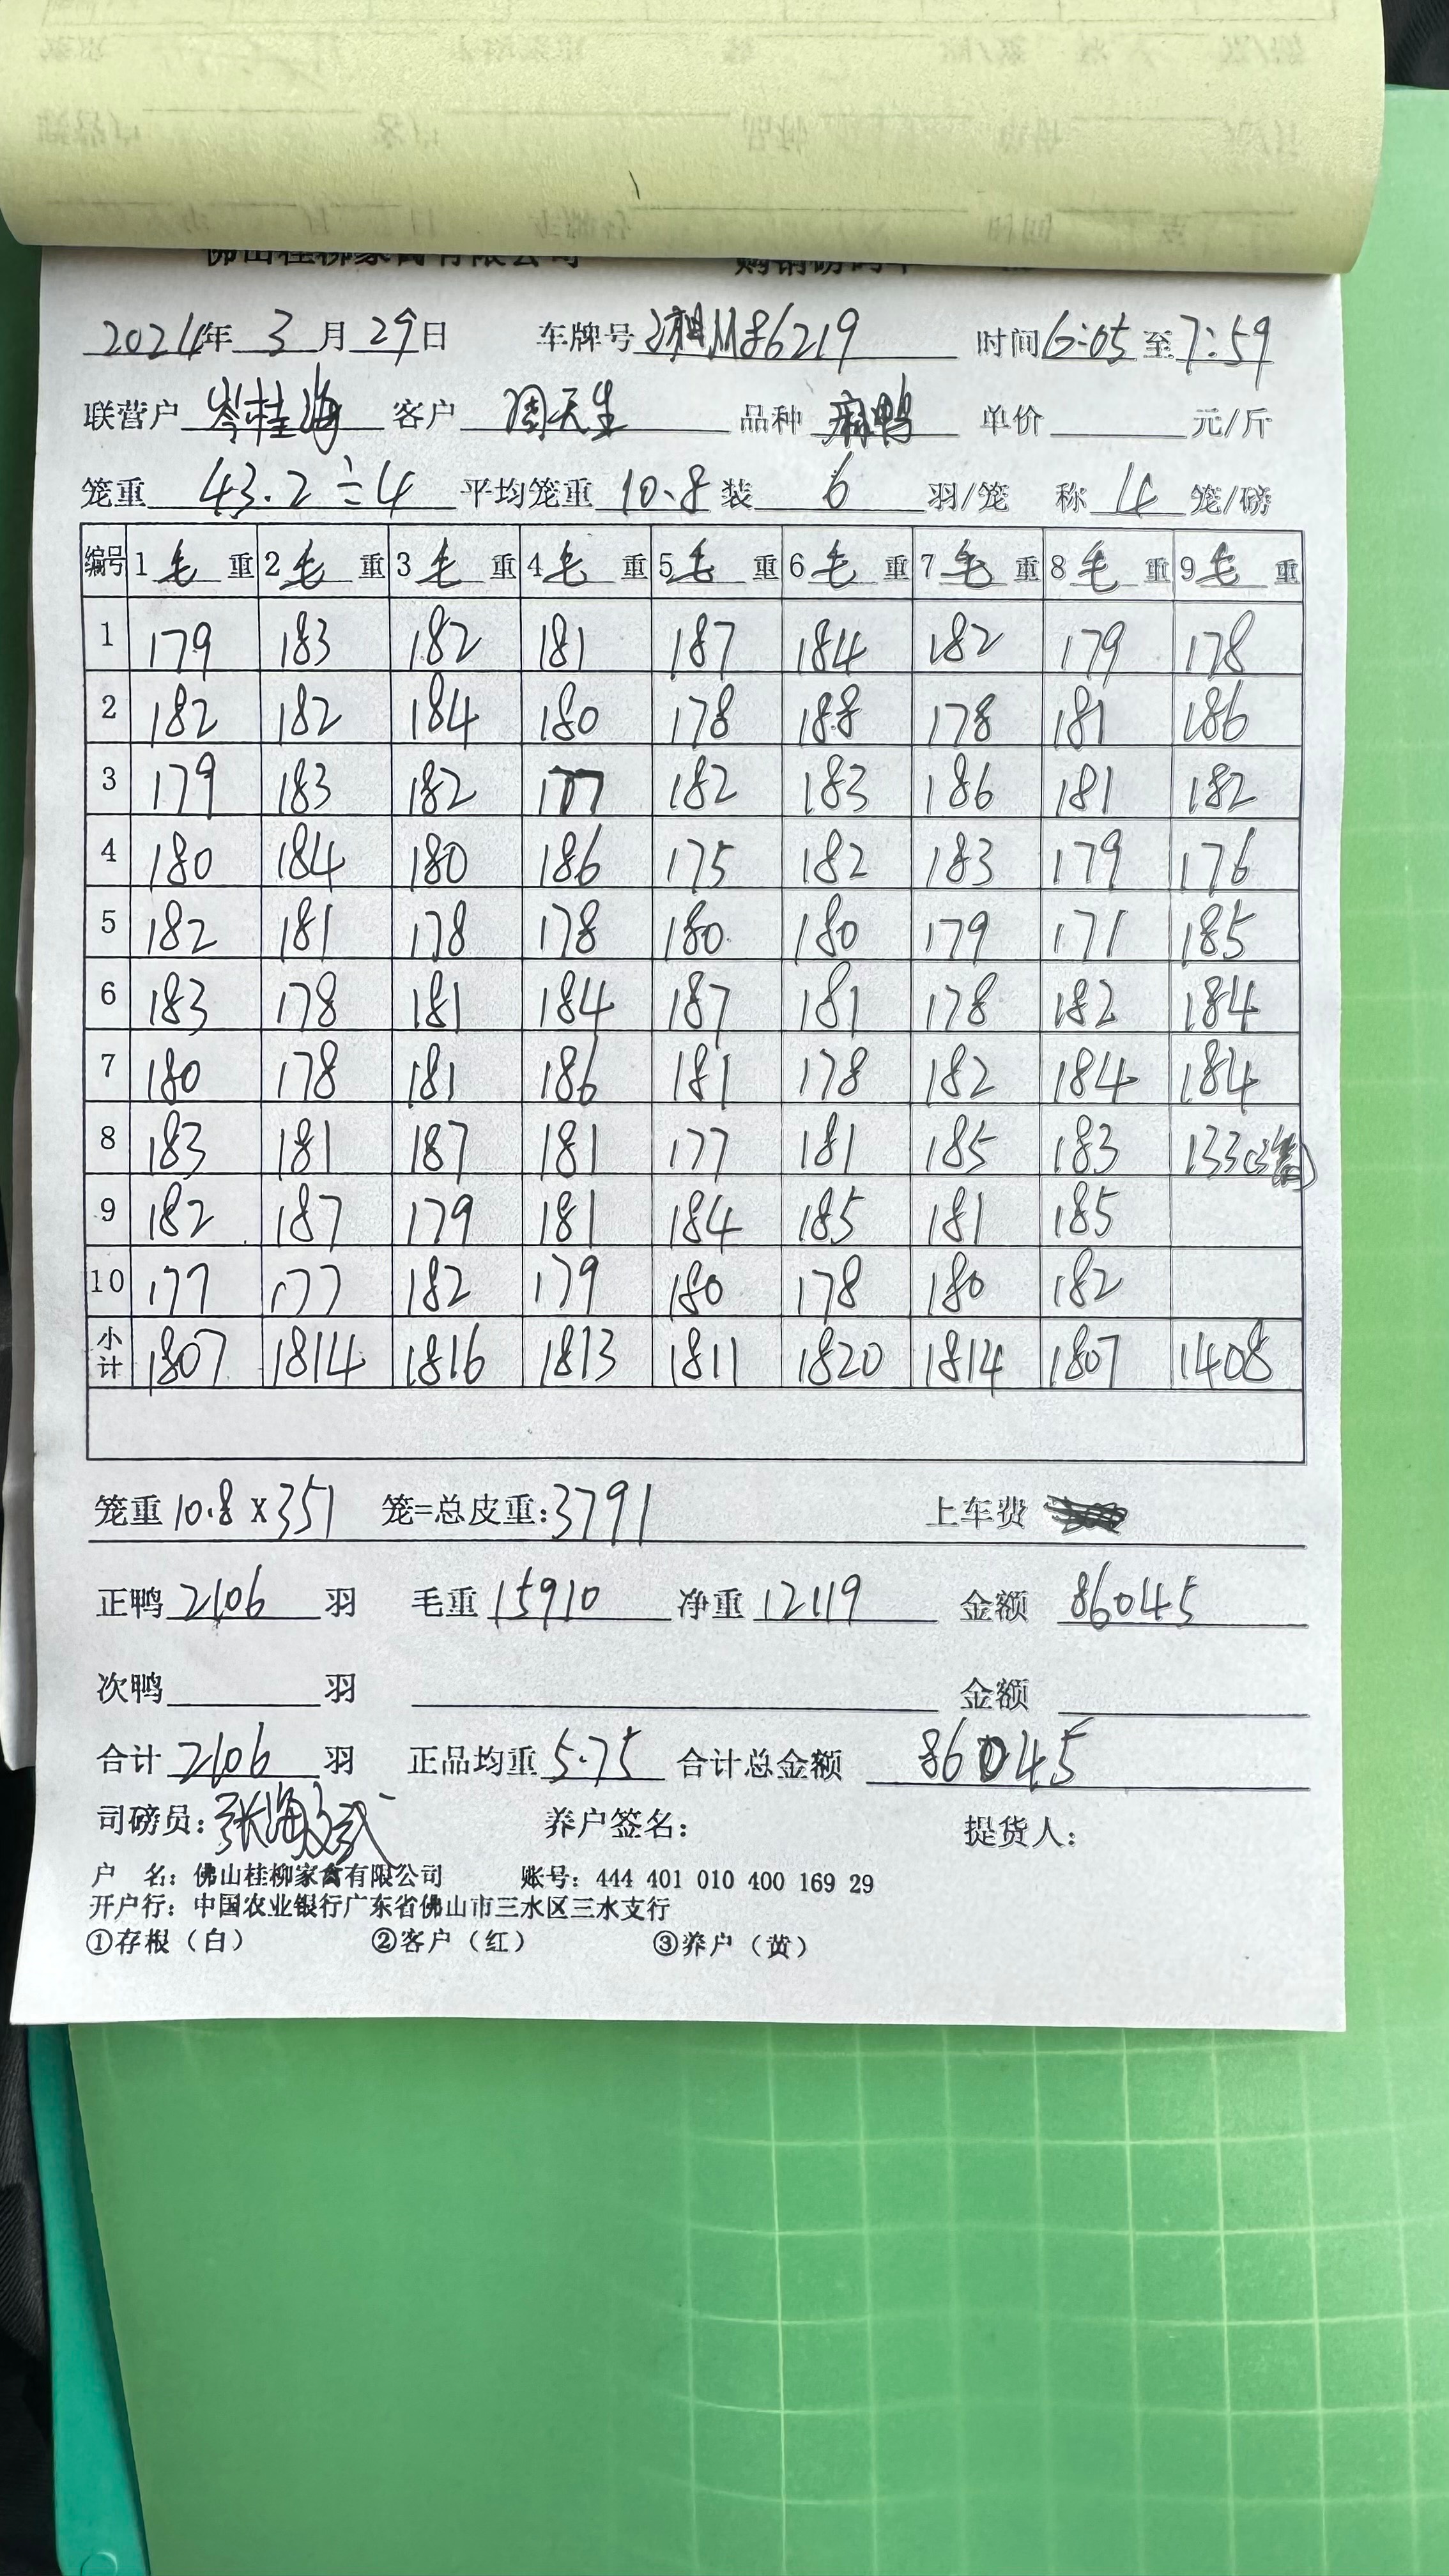 佛山桂柳家禽有限公司 购销磅码单
2024年 3 月 29 日 车牌号 湘M86219 时间 6:05 至 7:59
联营户 岑桂海 客户 周天生 品种 麻鸭 单价 元/斤
笼重 43.2÷4 平均笼重 10.8 装 6 羽/笼 称 4 笼/磅
编号 1 毛 重 2 毛 重 3 毛 重 4 毛 重 5 毛 重 6 毛 重 7 毛 重 8 毛 重 9 毛 重
1 179 183 182 181 187 184 182 179 178
2 182 182 184 180 178 188 178 181 186
3 179 183 182 177 182 183 186 181 182
4 180 184 180 186 175 182 183 179 176
5 182 181 178 178 180 180 179 171 185
6 183 178 181 184 187 181 178 182 184
7 180 178 181 186 181 178 182 184 184
8 183 181 187 181 177 181 185 183 133(3笼)
9 182 187 179 181 184 185 181 185
10 177 177 182 179 180 178 180 182
小计 1807 1814 1816 1813 1811 1820 1814 1807 1408
笼重 10.8 x 351 笼=总皮重: 3791 上车费
正鸭 2106 羽 毛重 15910 净重 12119 金额 86045
次鸭 羽 金额
合计 2106 羽 正品均重 5.75 合计总金额 86045
司磅员: 养户签名: 提货人:
户 名: 佛山桂柳家禽有限公司 账号: 444 401 010 400 169 29
开户行: 中国农业银行广东省佛山市三水区三水支行
①存根（白） ②客户（红） ③养户（黄）